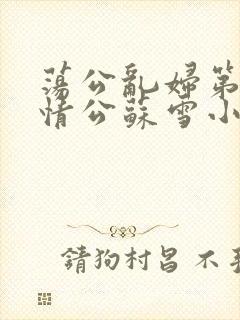 蕩公亂婦第
情公蘇雪小
請狗村呂不